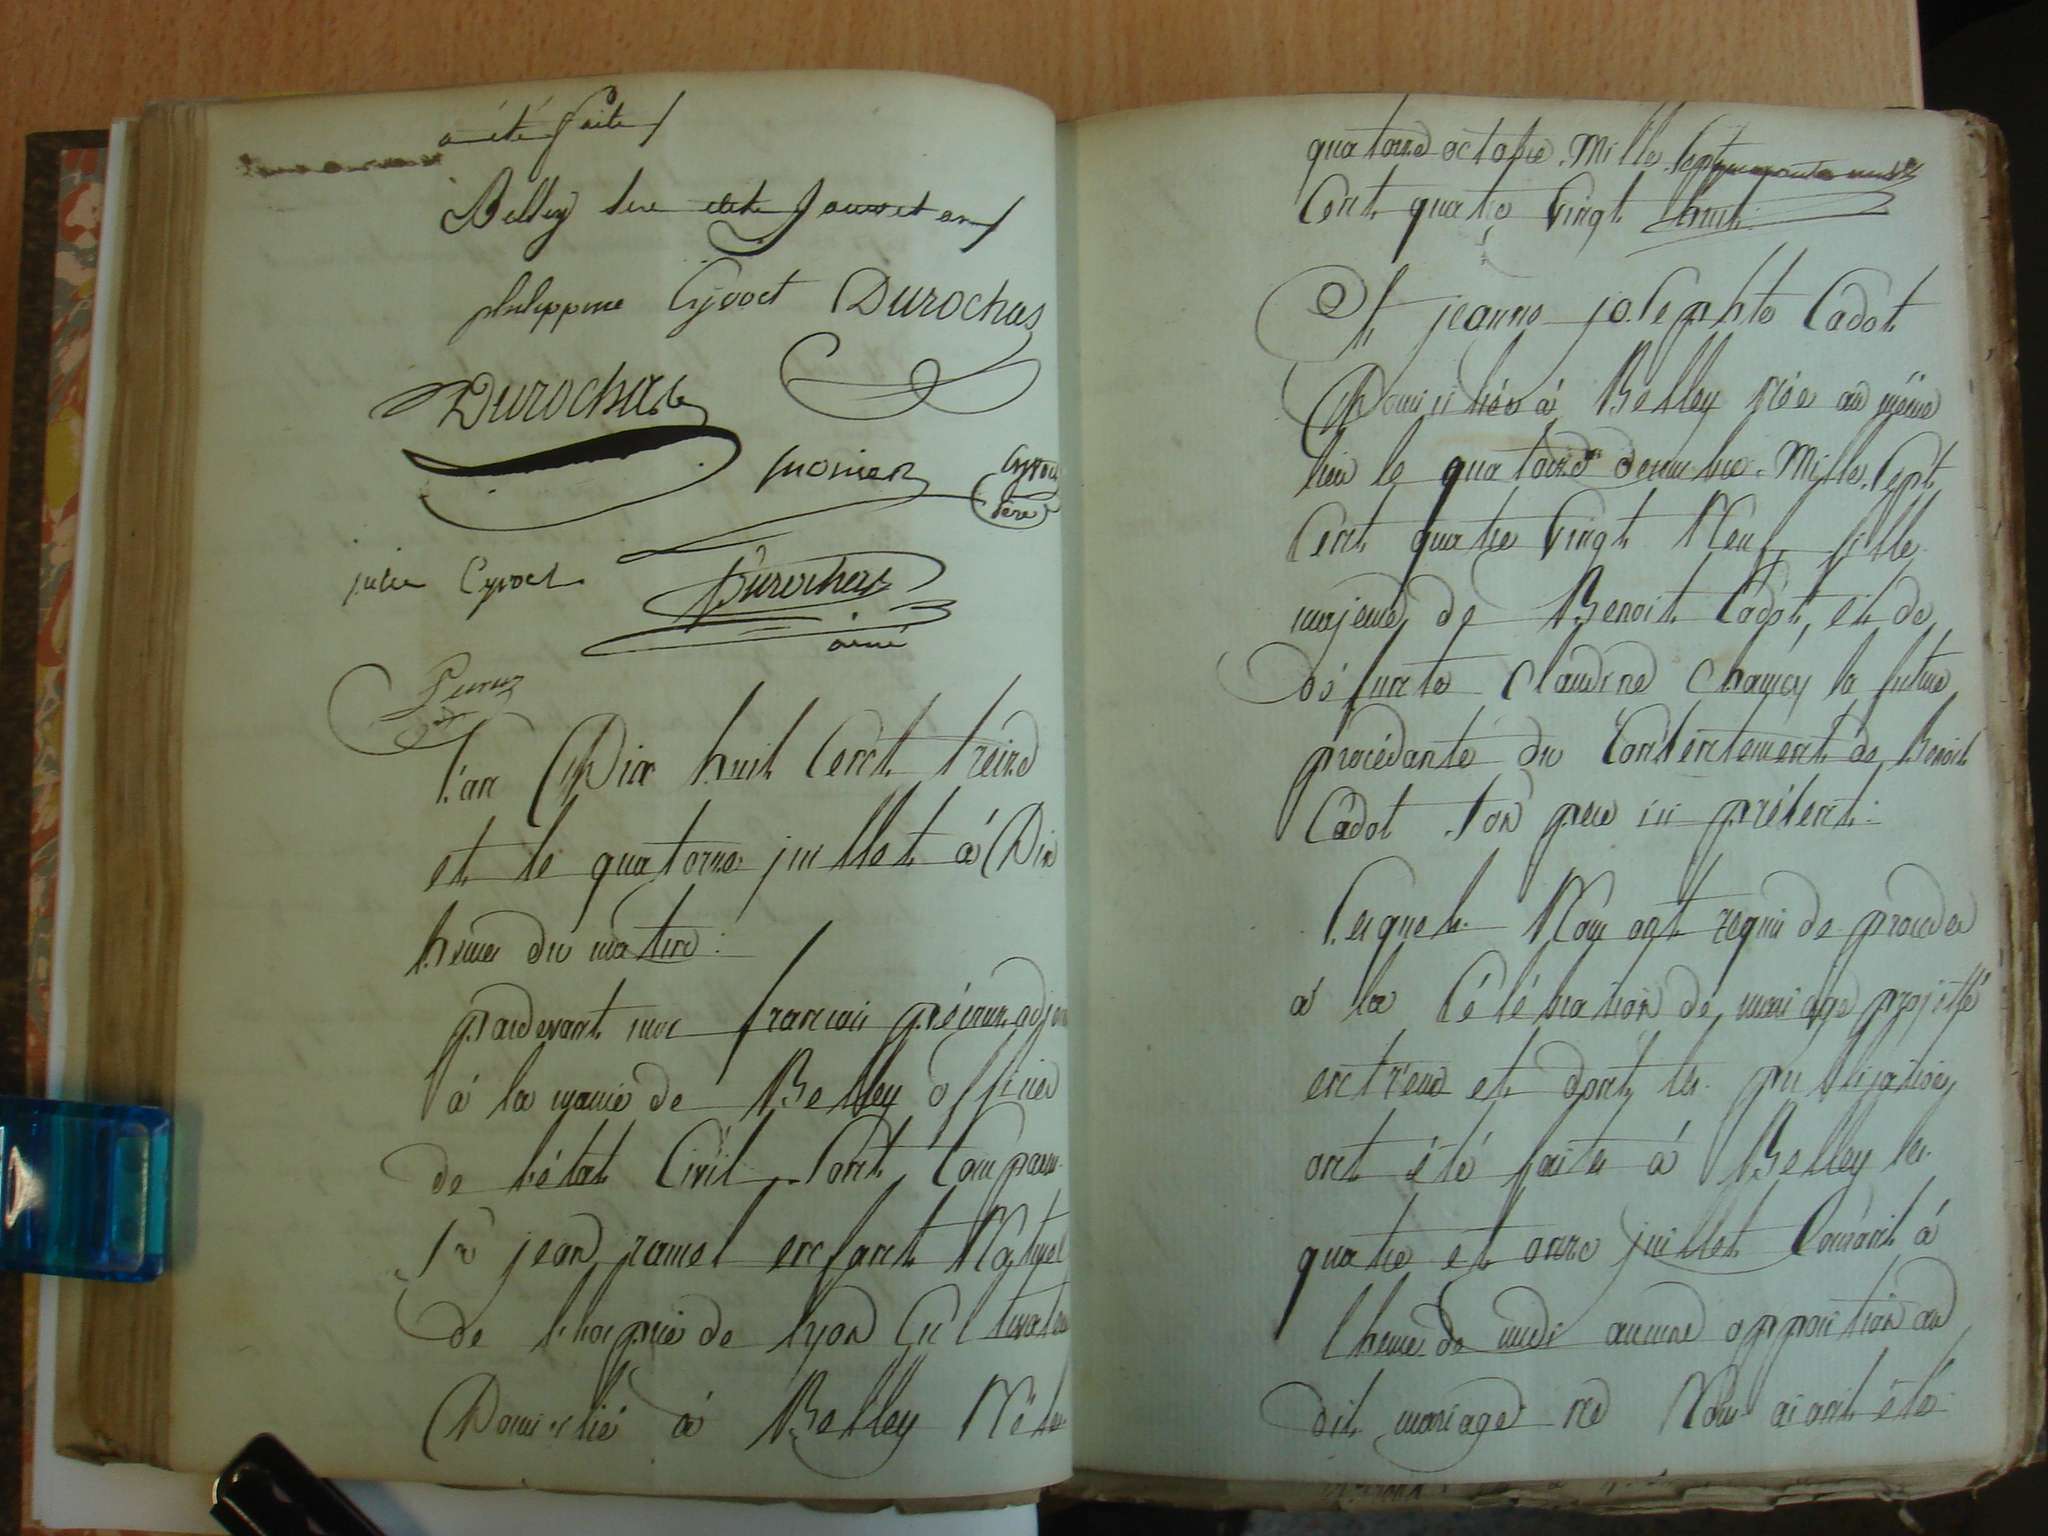 a été faite
Belley les
philippine Cyvoct Durochas
Durochas
monier Cyvoct
père
julie Cyvoct Durochas
ainé
l'an Dix huit Cent treize
et le quatorze juillet à Dix
heures du matin :
pardevant moi francois adjoint
à la mairie de Belley officier
de l'état Civil Sont Comparus
Sr jean ramel enfant Naturel
de l'hospice de lyon Cultivateur
Domicilié à Belley Né le
quatorze octobre Mille Sept
Cent quatre Vingt huit
Et jeanne josephte Cadot
Domiciliée à Belley née au même
lieu le quatorze decembre Mille Sept
Cent quatre Vingt Neuf fille
majeure de Benoit Cadot, et de
défunte Claudine Chamcy la future
procédante du Consentement de Benoit
Cadot Son pere ici présent :
lesquels Nous ont requis de proceder
à la Célébration de mariage projetté
entr'eux et dont les publications
ont été faites à Belley les
quatre et onze juillet Courant à
l'heure de midi aucune opposition au
dit mariage ne Nous aiant été